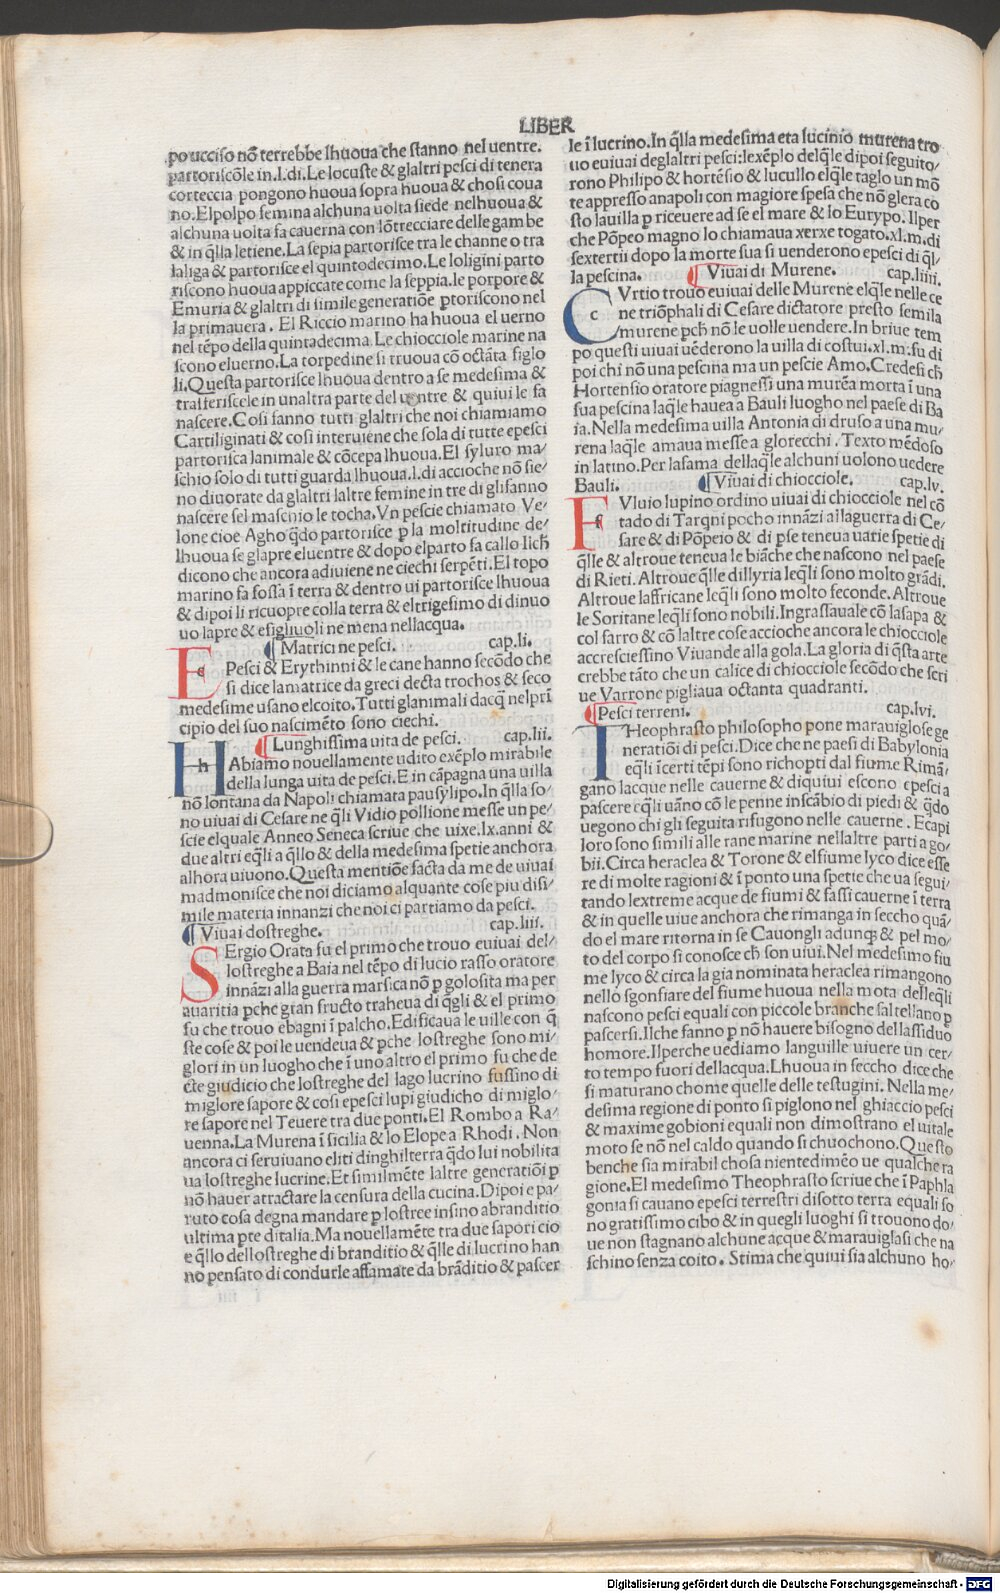 LIBER
po ucciso nõ terrebbe lhuoua che stanno nel uentre.
partoriscõle in.l.di.Le locuste & glaltri pesci di tenera
corteccia pongono huoua sopra huoua & chosi coua
no.El polpo femina alchuna uolta siede nelhuoua &
alchuna uolta fa cauerna con lõtrecciare delle gambe
& in q̃lla letiene.La sepia partorisce tra le channe o tra
laliga & partorisce el quintodecimo.Le loligini parto
riscono huoua appiccate come la seppia.le porpore &
Emuria & glaltri di simile generatiõe ptoriscono nel
la primauera. El Riccio marino ha huoua el uerno
nel tẽpo della quintadecima.Le chiocciole marine na
scono eluerno.La torpedine si truoua cõ octãta figlo
li.Questa partorisce lhuoua dentro a se medesima &
trasferiscele in unaltra parte del uentre & quiui le fa
nascere.Cosi fanno tutti glaltri che noi chiamiamo
Cartiliginati & cosi interuiene che sola di tutte epesci
partorisca lanimale & cõcepa lhuoua.El syluro ma/
schio solo di tutti guarda lhuoua.l.di accioche nõ sie/
no diuorate da glaltri laltre femine in tre di glisanno
nascere sel maschio le tocha.Vn pescie chiamato Ve/
lone cioe Agho q̃do partorisce p la moltitudine de/
lhuoua se glapre eluentre & dopo elparto fa callo lich̃
dicono che ancora adiuiene ne ciechi serpẽti.El topo
marino fa fossa ĩ terra & dentro ui partorisce lhuoua
& dipoi li ricuopre colla terra & eltrigesimo di dinuo
uo lapre & efigliuoli ne mena nellacqua.
Matrici ne pesci. cap.li.
E Pesci & Erythinni & le cane hanno secõdo che
si dice lamatrice da greci decta trochos & seco
medesime usano elcoito.Tutti glanimali dacq̃ nelpri
cipio del suo nascimẽto sono ciechi.
Lunghissima uita de pesci. cap.lii.
HAbiamo nouellamente udito exẽplo mirabile
della lunga uita de pesci.E in cãpagna una uilla
nõ lontana da Napoli chiamata pausylipo.In q̃lla so/
no uiuai di Cesare ne q̃li Vidio pollione messe un pe/
scie elquale Anneo Seneca scriue che uixe.lx.anni &
due altri eq̃li a q̃llo & della medesima spetie anchora
alhora uiuono.Questa mentiõe facta da me de uiuai
madmonisce che noi diciamo alquante cose piu disi/
mile materia innanzi che noi ci partiamo da pesci.
Viuai dostreghe. cap.liii.
SErgio Orata fu el primo che trouo euiuai del/
lostreghe a Baia nel tẽpo di lucio rasso oratore
innãzi alla guerra marsica nõ p golosita ma per
auaritia pche gran fructo traheua di q̃gli & el primo
fu che trouo ebagni ĩ palcho.Edificaua le uille con q̃
ste cose & poi le uendeua & pche lostreghe sono mi/
glori in un luogho che ĩ uno altro el primo fu che de
cte giudicio che lostreghe del lago lucrino fussino di
miglore sapore & cosi epesci lupi giudicho di miglo/
re sapore nel Teuere tra due ponti.El Rombo a Ra/
uenna.La Murena ĩ sicilia & lo Elope a Rhodi. Non
ancora ci seruiuano eliti dinghilterra q̃do lui nobilita
ua lostreghe lucrine.Et similmẽte laltre generatiõi p
nõ hauer attractare la censura della cucina.Dipoi e pa/
ruto cosa degna mandare p lostree insino abranditio
ultima pte ditalia.Ma nouellamẽte tra due sapori cio
e q̃llo dellostreghe di branditio & q̃lle di lucrino han
no pensato di condurle affamate da brãditio & pascer
le ĩ lucrino.In q̃lla medesima eta lucinio murena tro
uo euiuai deglaltri pesci:lexẽplo delq̃le dipoi seguito/
rono Philipo & hortẽsio & lucullo elq̃le taglo un mõ
te appresso anapoli con magiore spesa che nõ glera co
sto lauilla p riceuere ad se el mare & lo Eurypo.Ilper
che Põpeo magno lo chiamaua xerxe togato.xl.m.di
sextertii dopo la morte sua si uenderono epesci di q̃l/
la pescina. Viuai di Murene. cap.liiii.
CVrtio trouo euiuai delle Murene elq̃le nelle ce
ne triõphali di Cesare dictatore presto semila
murene pch nõ le uolle uendere.In briue tem
po questi uiuai uẽderono la uilla di costui.xl.m.fu di
poi chi nõ una pescina ma un pescie Amo.Credesi ch̃
Hortensio oratore piagnessi una murẽa morta ĩ una
sua pescina laq̃le hauea a Bauli luogho nel paese di Ba
ia.Nella medesima uilla Antonia di druso a una mu/
rena laq̃le amaua messe a glorecchi. Texto mẽdoso
in latino.Per lafama dellaq̃le alchuni uolono uedere
Bauli. Viuai di chiocciole. cap.lv.
FVluio lupino ordino uiuai di chiocciole nel cõ
tado di Tarq̃ni pocho innãzi allaguerra di Ce/
sare & di Põpeio & di pse teneua uarie spetie di
q̃lle & altroue teneua le biãche che nascono nel paese
di Rieti.Altroue q̃lle dillyria leq̃li sono molto grãdi.
Altroue laffricane leq̃li sono molto feconde.Altroue
le Soritane leq̃li sono nobili.Ingrassauale cõ lasapa &
col farro & cõ laltre cose accioche ancora le chiocciole
accresciessino Viuande alla gola.La gloria di q̃sta arte
crebbe tãto che un calice di chiocciole secõdo che scri
ue Varrone pigliaua octanta quadranti.
Pesci terreni. cap.lvi.
THeophrasto philosopho pone marauiglose ge
neratiõi di pesci.Dice che ne paesi di Babylonia
eq̃li ĩcerti tẽpi sono richopti dal fiume Rimã/
gano lacque nelle cauerne & diquiui escono epesci a
pascere eq̃li uãno cõ le penne inscãbio di piedi & q̃do
uegono chi gli seguita rifugono nelle cauerne.Ecapi
loro sono simili alle rane marine nellaltre parti a go/
bii.Circa heraclea & Torone & elfiume lyco dice esse
re di molte ragioni & ĩ ponto una spetie che ua segui/
tando lextreme acque de fiumi & fassi cauerne ĩ terra
& in quelle uiue anchora che rimanga in seccho quã/
do el mare ritorna in se Cauongli adunq̃ & pel mo/
to del corpo si conosce ch̃ son uiui.Nel medesimo fiu
me lyco & circa la gia nominata heraclea rimangono
nello sgonfiare del fiume huoua nella mota delleq̃li
nascono pesci equali con piccole branche saltellano p
pascersi.Ilche fanno p nõ hauere bisogno dellassiduo
homore.Ilperche uediamo languille uiuere un cer/
to tempo fuori dellacqua.Lhuoua in seccho dice che
si maturano chome quelle delle testugini. Nella me/
desima regione di ponto si piglono nel ghiaccio pesci
& maxime gobioni equali non dimostrano el uitale
moto se nõ nel caldo quando si chuochono.Questo
benche sia mirabil chosa nientedimẽo ue qualche ra
gione.El medesimo Theophrasto scriue che ĩ Paphla
gonia si cauano epesci terrestri disotto terra equali so
no gratissimo cibo & in quegli luoghi si trouono do/
ue non stagnano alchune acque & marauiglasi che na
schino senza coito. Stima che quiui sia alchuno ho/
Digitalisierung gefördert durch die Deutsche Forschungsgemeinschaft - DFG